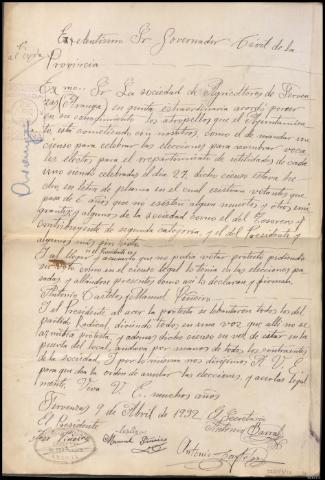 Excelentisimo Sr Governador Civil de la
Provincia
Exmo. Sr La sociedad de Agricultores de Ferven
zas (Aranga) en junta extraordinaria acordo poner
en su conocimiento los atropellos que el Ayuntamien
to, está cometiendo con nosotros, como el de mandar un
cienso para celebrar las elecciones para nombrar voca
les electos para el repartimiento de utilidades de cada
uno siendo celebradas el dia 27, dicho cienso estava he
cho en letra de pluma en el cual existian votantes que
pasa de 6 años que no existen algun muertos y otros emi
grantes y algunos de la sociedad como el del Tesorero
contribuyente de segunda categoria, y el del Presidente y
algunos más sin voto
I al llegar y acordo que no podia votar protesto pediendo
su voto como en el cienso legal lo tenia en las elecciones pa
sadas y allandose presentes como asi lo declaran y firman
Antonio Castelos Manuel Piñeiro
I el Presidente al acer la protesta se lebantaron todos los del
partido Radical, diciendo todos en una voz que alli no se
azmitia protesta y ademas dicho cienso en vez de estar en la
puerta del local, andava por manos de todos los contrarios
de la sociedad I por lo mismo nos dirijimos A V. E.
para que dea la orden de anular las elecciones, y acerlas legal
mente, Viva V. E., muchos años
Fervenzas 9 de Abril de 1932
El Presidente
El Secretario
Jose Piñeiro
Manuel Piñeiro
Antonio Barral
Antonio
Aranga